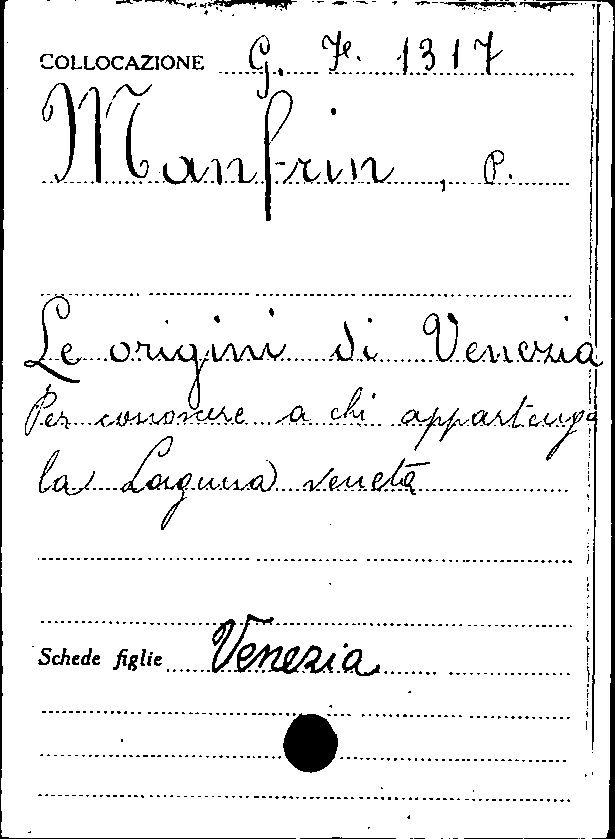 COLLOCAZIONE G. Fe. 1317
Manfrin, P.
Le origini di Venezia
Per conoscere a chi appartenga
la Laguna veneta
Schede figlie Venezia